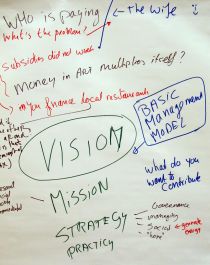 WHO is paying
the wife
What's the problem?
Subsidies did not work
Money in Art multiplies itself?
you finance local restaurants
BASIC
Management
MODEL
VISION
what do you
want to
contribute
MISSION
STRATEGY
PRACTICY
Governance
managing
Social
generate
energy